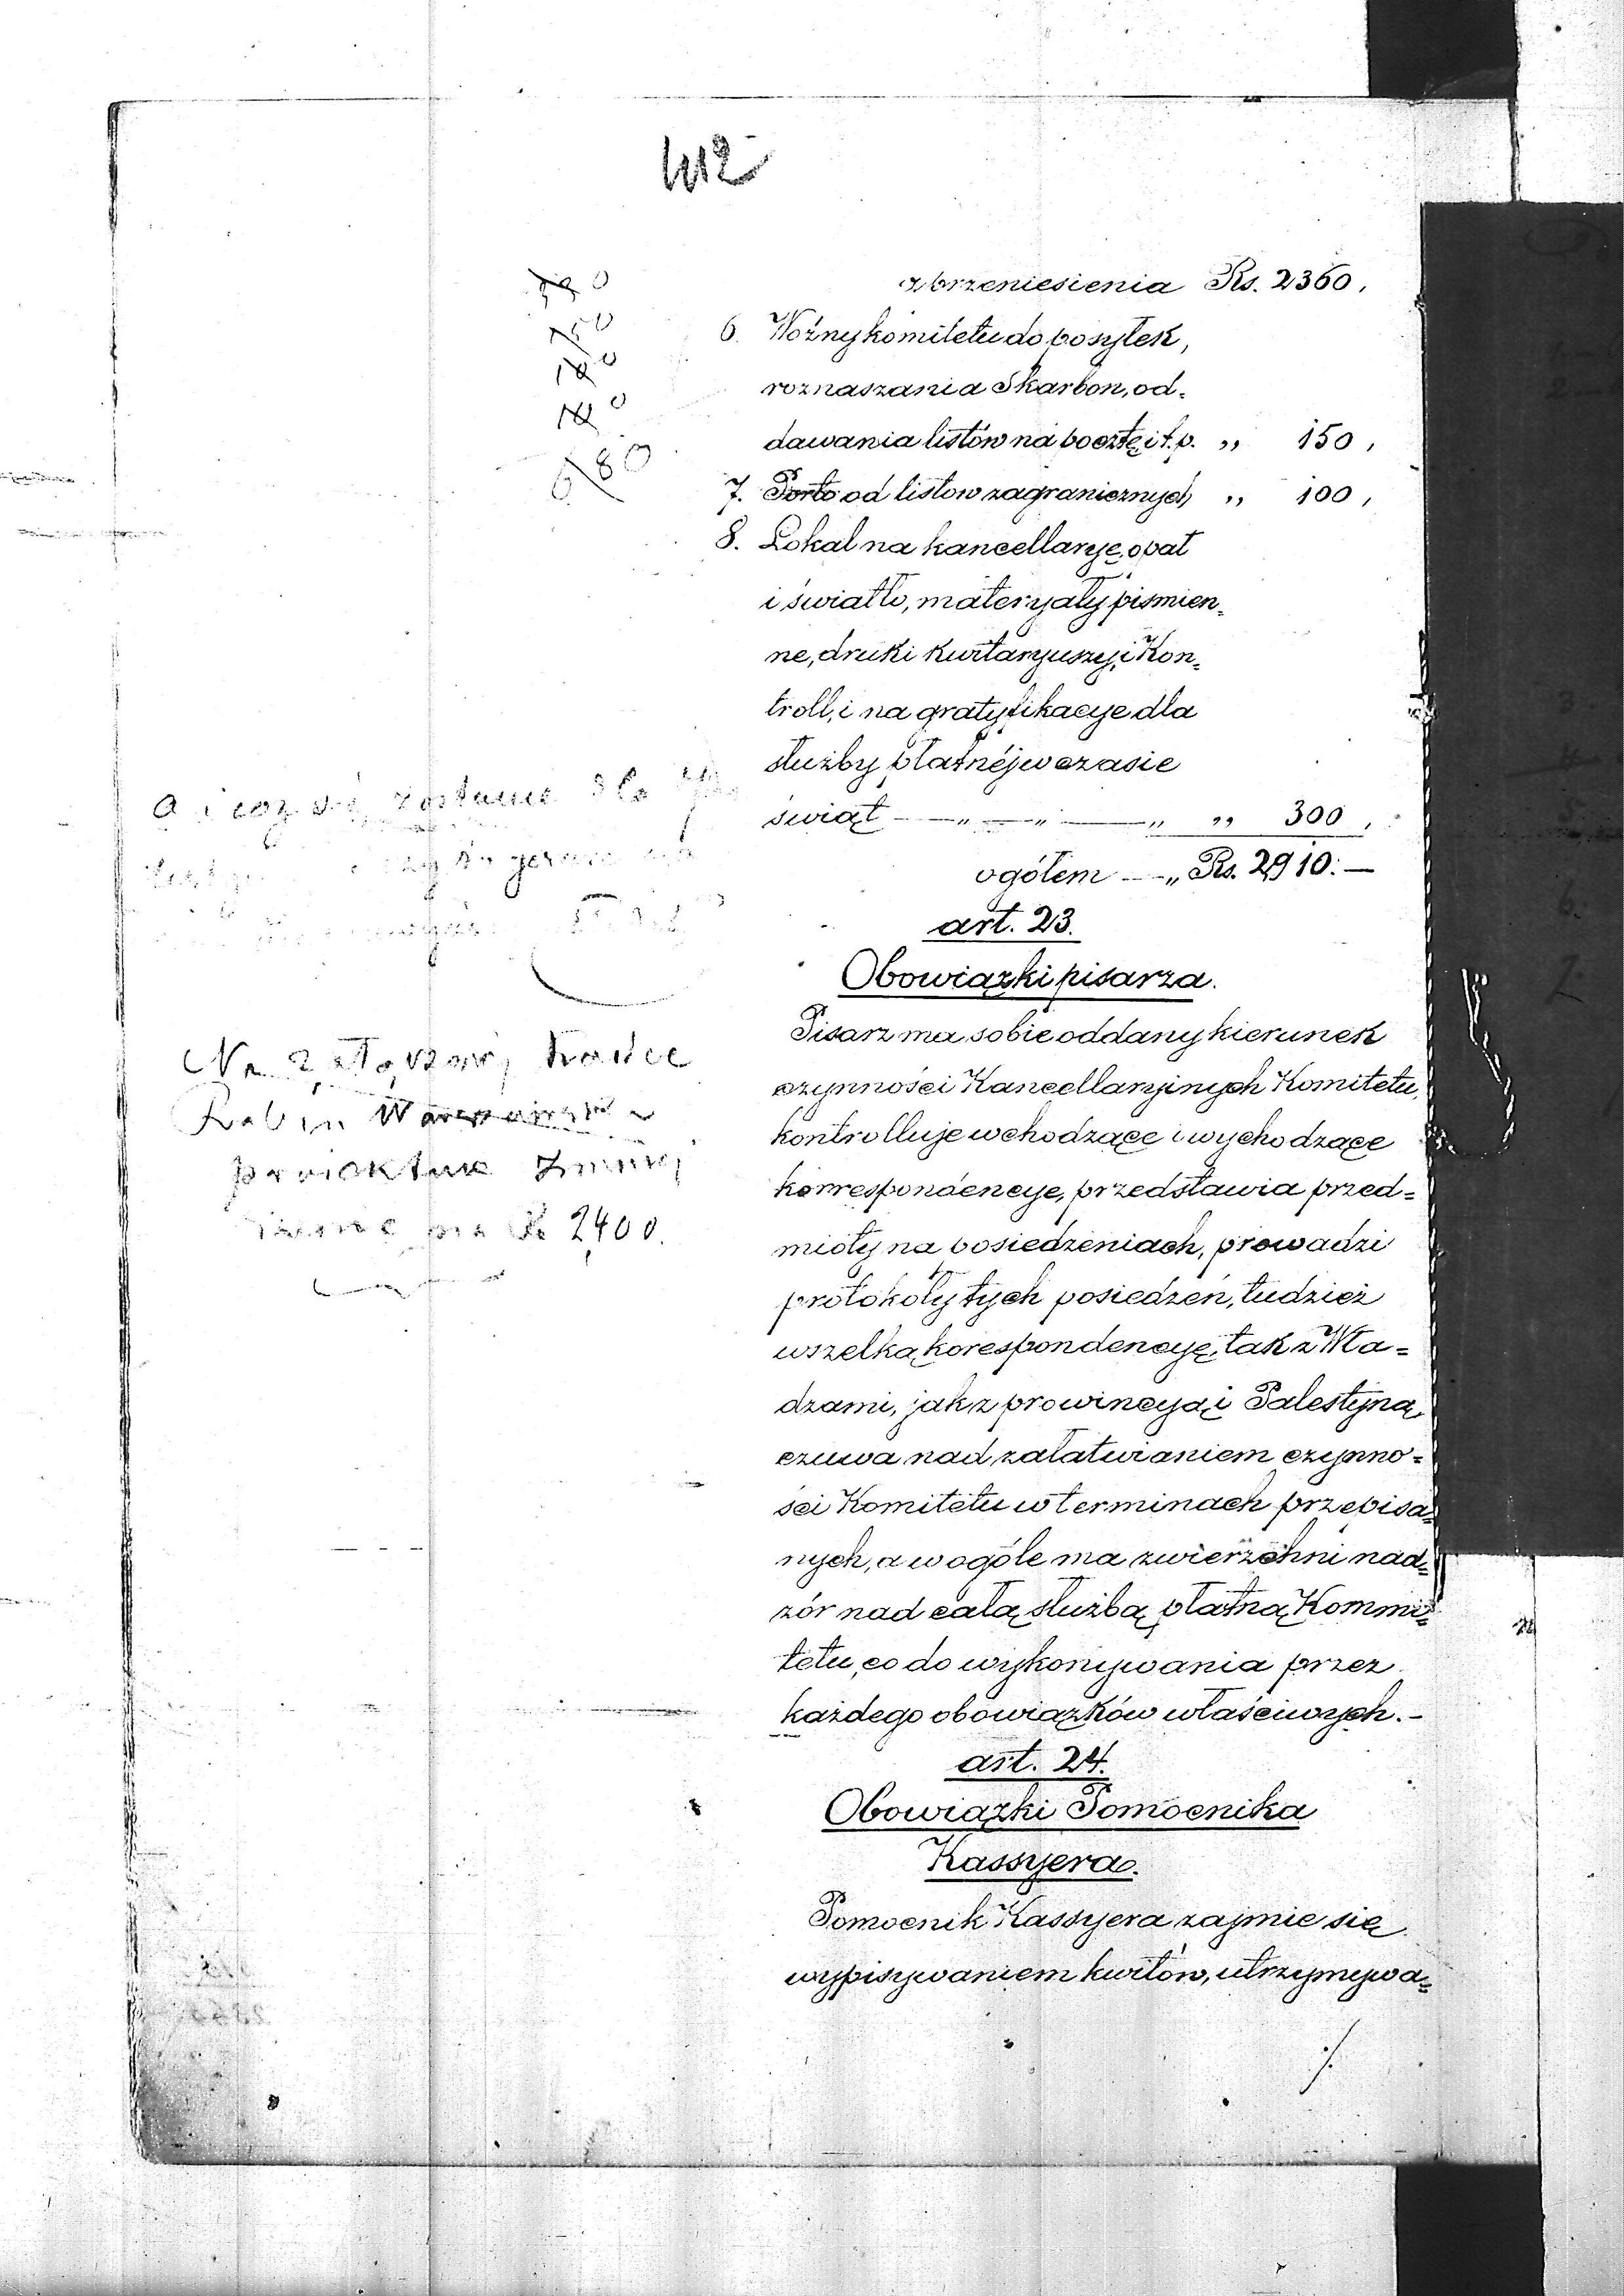 412
z przeniesienia Rs. 2360,
6. Woźny komitetu do posyłek,
roznaszania Skarbon, od-
dawania listów na pocztę i t.p. „ 150,
7. Porto od listow zagranicznych „ 100,
8. Lokal na kancellaryę, opał
i światło, materyały pismien-
ne, druki kwitaryuszy, i Kon-
troll, i na gratyfikacye dla
służby płatnéj w czasie
świąt — „ — „ — „ „ 300,
ogółem — „ Rs. 2910. —
art. 23.
Obowiązki pisarza.
Pisarz ma sobie oddany kierunek
czynności Kancellaryinych Komitetu,
kontrolluje wchodzące i wychodzące
korrespondencye, przedstawia przed-
mioty na posiedzeniach, prowadzi
protokoły tych posiedzeń, tudzież
wszelką korespondencyę, tak z Wła-
dzami, jak z prowincyą i Palestyną,
czuwa nad załatwianiem czynno-
ści Komitetu w terminach przepisa-
nych, a w ogóle ma zwierzchni nad-
zór nad całą służbą płatną Kommi-
tetu, co do wykonywania przez
każdego obowiązków właściwych. –
art. 24.
Obowiązki Pomocnika
Kassyera.
Pomocnik Kassyera zajmie się
wypisywaniem kwitów, utrzymywa-
150
680
Na
Rabin
2400.